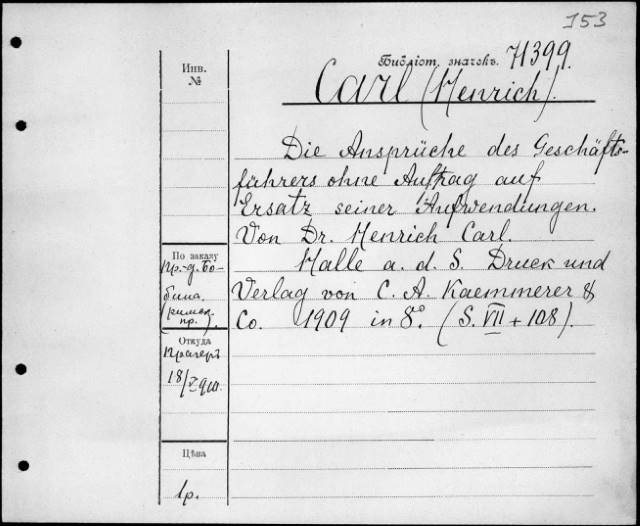 153
Инв.
№
Библіот. значекъ. 71399.
Carl (Henrich).
Die Ansprüche des Geschäfts-
führers ohne Auftrag auf
Ersatz seiner Aufwendungen.
Von Dr. Henrich Carl.
Halle a. d. S. Druck und
Verlag von C. A. Kaemmerer &
Co. 1909 in 8° (S. VII + 108).
По заказу
пр.-д. Бо-
бина.
(римск.
пр.).
Откуда
Прагеръ
18/V 910.
Цѣна
1р.